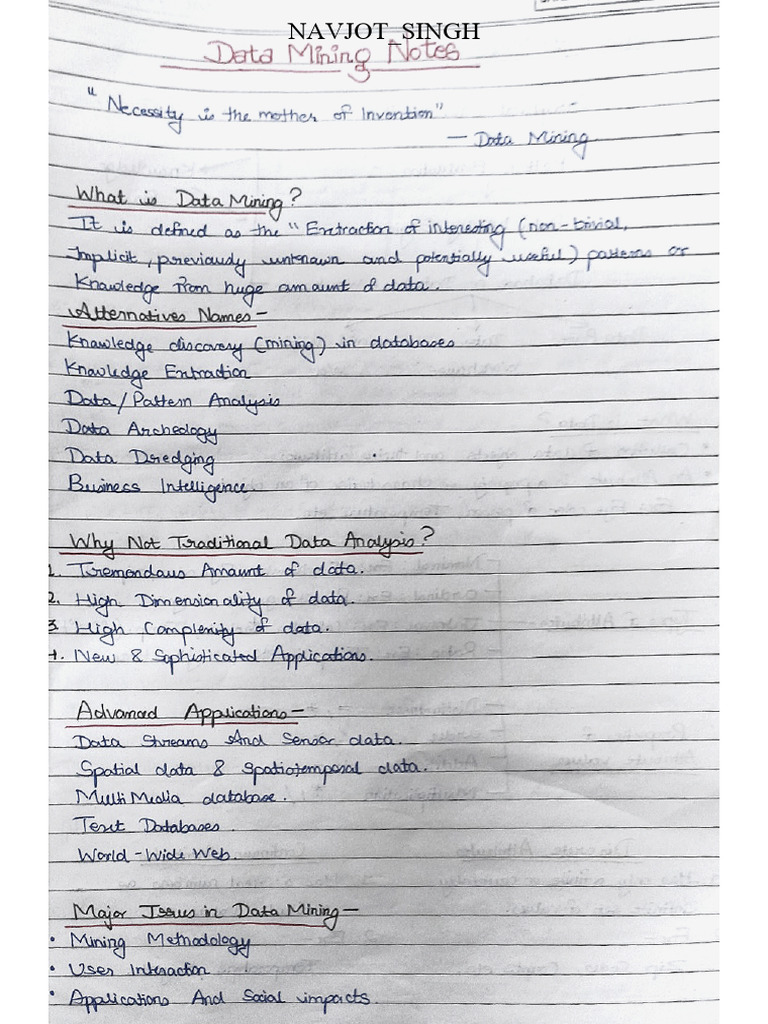 NAVJOT_SINGH
Data Mining Notes
"Necessity is the mother of Invention"
— Data Mining
What is Data Mining?
It is defined as the "Extraction of interesting (non-trivial,
Implicit, previously unknown and potentially useful) patterns or
Knowledge from huge amount of data.
Alternatives Names-
Knowledge discovery (mining) in databases
Knowledge Extraction
Data/Pattern Analysis
Data Archeology
Data Dredging
Business Intelligence.
Why Not Traditional Data Analysis?
1. Tremendous Amount of data.
2. High Dimensionality of data.
3. High Complexity of data.
4. New & Sophisticated Applications.
Advanced Applications-
Data Streams And Sensor data.
Spatial data & Spatiotemporal data.
MultiMedia database.
Text Databases.
World-Wide Web.
Major Issues in Data Mining-
• Mining Methodology
• User Interaction
• Applications And Social impacts.